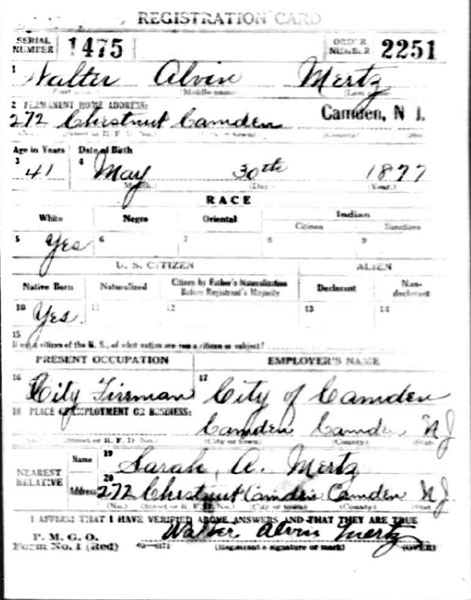 REGISTRATION CARD
SERIAL NUMBER 1475 ORDER NUMBER 2251
1 Walter Alvin Mertz
2 PERMANENT HOME ADDRESS: Camden, N J.
272 Chestnut Camden
Age in Years Date of Birth
3 41 4 May 30th 1877
(Month.) (Day.) (Year.)
RACE
White Negro Oriental Indian
Citizen
5 Yes 6 7 8 9
U. S. CITIZEN ALIEN
Native Born Naturalized Citizen by Father's Naturalization Before Registrant's Majority Declarant Non-declarant
10 Yes. 11 12 13 14
15
If not a citizen of the U. S., of what nation are you a citizen or subject?
PRESENT OCCUPATION EMPLOYER'S NAME
16 City Fireman 17 City of Camden
18 PLACE OF EMPLOYMENT OR BUSINESS:
Camden Camden, N J
(Street or R. F. D. No.) (City or town) (County)
NEAREST RELATIVE Name 19 Sarah A. Mertz
Address 20 272 Chestnut Camden Camden N J.
(No.) (Street or R. F. D. No.) (City or town) (County)
I AFFIRM THAT I HAVE VERIFIED ABOVE ANSWERS AND THAT THEY ARE TRUE
P. M. G. O.
Form No. 1 (Red) Walter Alvin Mertz
(Registrant's signature or mark) (OVER)